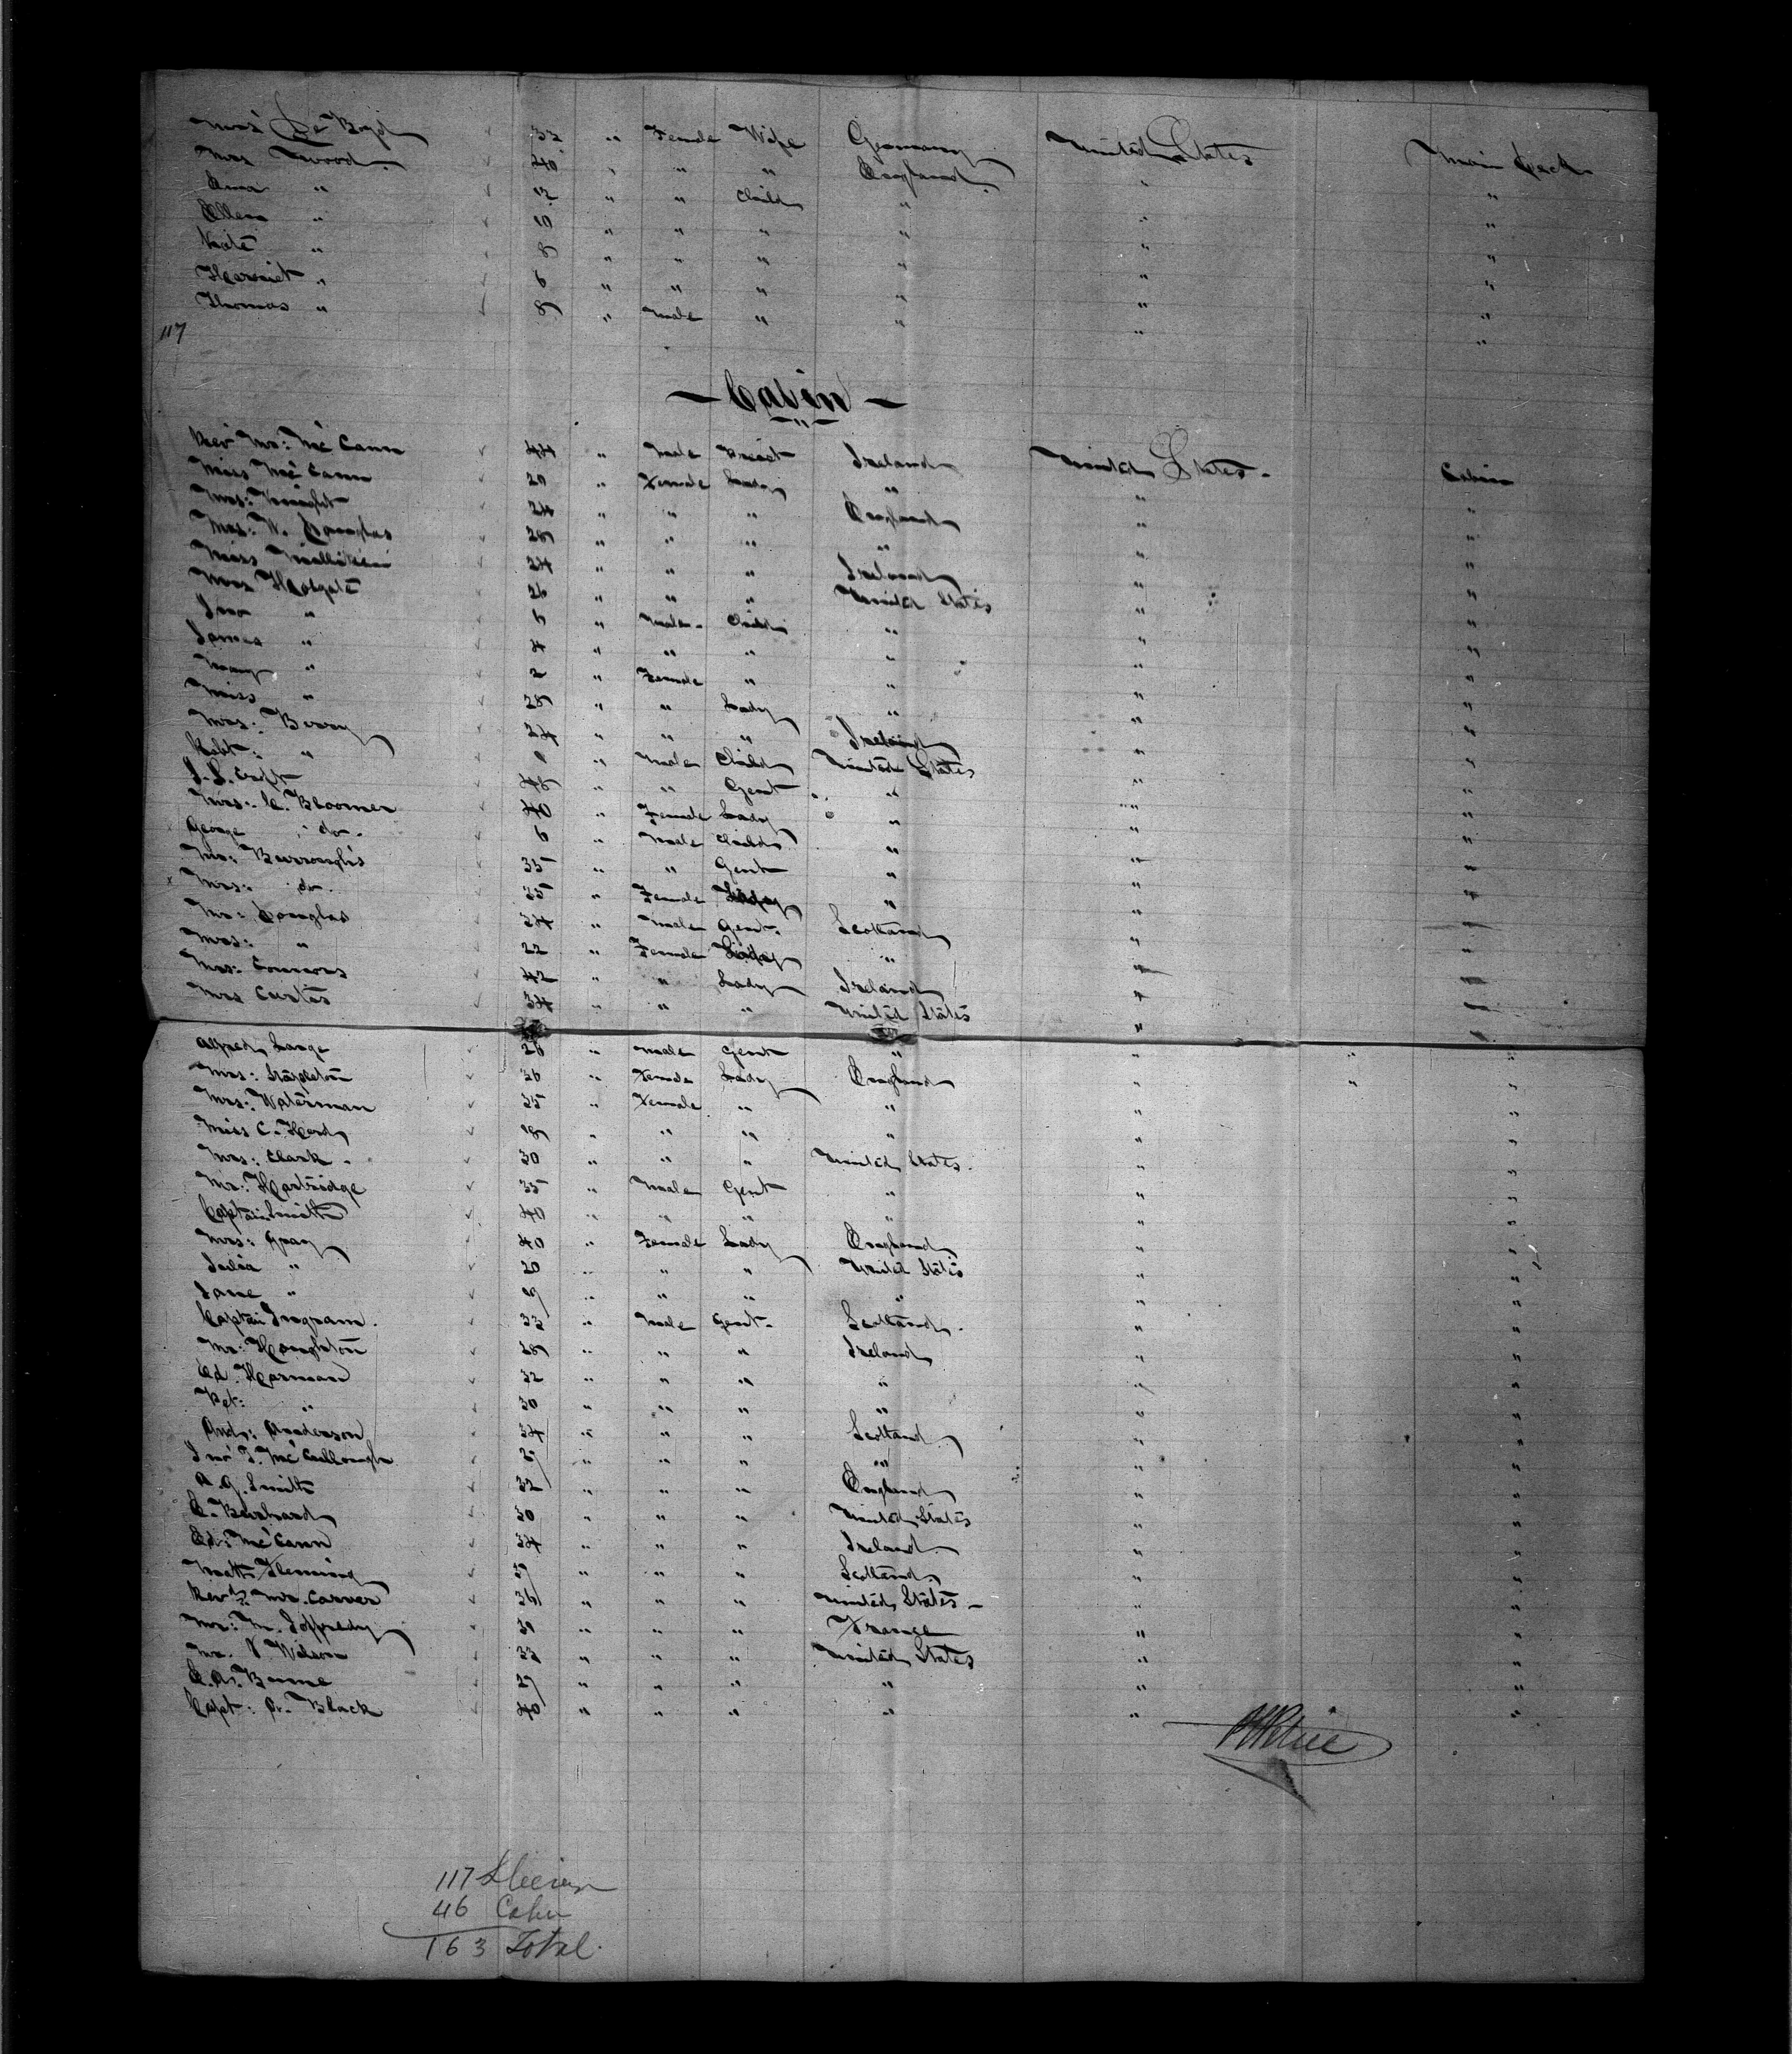 Mrs De Boyd 32 " Female Wife Germany United States Main Deck
Mrs Wood 40 " " " England " "
Anna " 12 " " Child " " "
Ellen " 10 " " " " " "
Kate " 8 " " " " " "
Harriet " 6 " " " " " "
Thomas " 8 " Male " " " "
117
— Cabin —
Revd Mr: McCann 44 " Male Priest Ireland United States - Cabin
Miss McCann 20 " Female Lady " " "
Mrs: Knight 24 " " " England " "
Mrs: W. Douglas 28 " " " " " "
Miss 24 " " " Ireland " "
Mrs Holgate 26 " " " United States " "
Jno " 6 " Male - Child " " "
James " 4 " " " " " "
Mary " 2 " Female " " " "
Miss " 28 " " Lady " " "
Mrs: Berry 24 " " " Ireland " "
Robt: " " Male Child United States " "
J. S. Croft 48 " " Gent " " "
Mrs: C. Bloomer 40 " Female Lady " " "
George do. 6 " Male Child " " "
Mr: Burroughs 35 " " Gent " " "
Mrs: do. 25 " Female Lady " " "
Mr: Douglas 34 " Male Gent. Scotland " "
Mrs: " 22 " Female Lady " " "
Mrs: Connors 42 " " Lady Ireland " "
Mrs Curtis 34 " " " United States " "
Alfred Lange 28 " Male Gent " " " "
Mrs: Stapleton 36 " Female Lady England " " "
Mrs: Waterman 35 " Female " " " "
Miss C. Hard 18 " " " " " "
Mrs: Clark - 30 " " " United States. " "
Mr: Hartridge 35 " Male Gent " " "
Captain Smith 40 " " " " " "
Mrs: Gray 40 " Female Lady England " "
Julia " 20 " " " United States " "
Jane " " " " " " "
Captain Ingram. 33 " Male Gent - Scotland. " "
Mr: Houghton 28 " " " Ireland " "
Ed. Harman 32 " " " " " "
Pet: " 30 " " " " " "
Andr: Anderson 34 " " " Scotland " "
Jno T. McCullough " " " " " "
A. G. Smith 32 " " " England " "
E. Bernhard 30 " " " United States " "
Ed: McCann 34 " " " Ireland " "
Matt Fleming " " " Scotland. " "
Revd: Mr. Carver 36 " " " United States - " "
Mr: M. Joffredy " " " France " "
Mr. V Wilson 33 " " " United States " "
27 " " " " " "
Capt: A. Black 40 " " " " " "
117
46
163 Total.